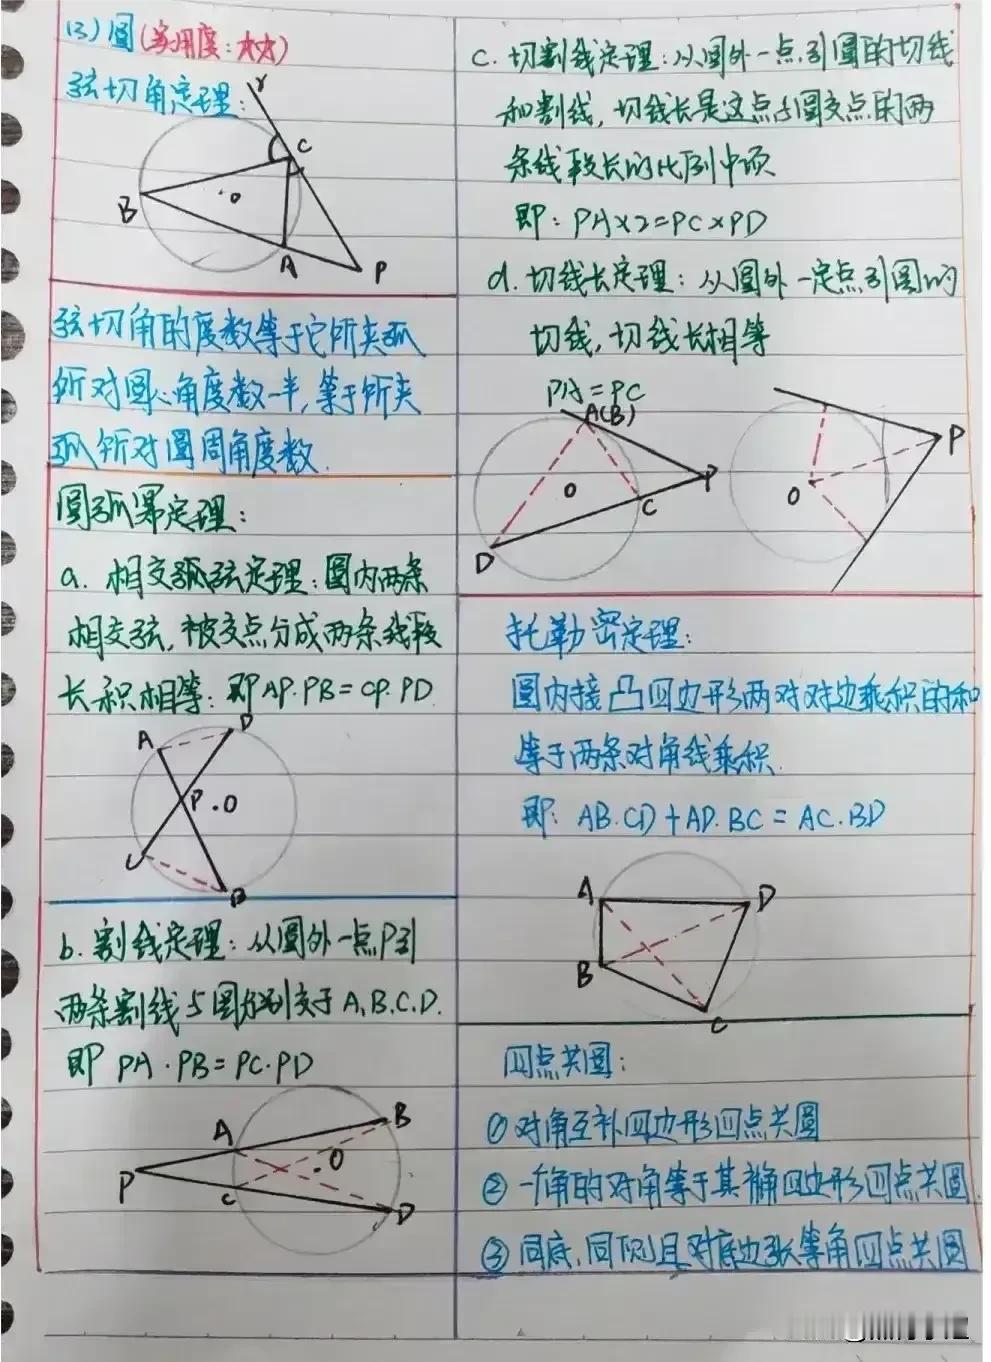 13) 圆(实用度:大大)
弦切角定理:
B
O
C
A
P
弦切角的度数等于它所夹弧
所对圆心角度数一半,等于所夹
弧所对圆周角度数.
圆弧幂定理:
a. 相交弧弦定理:圆内两条
相交弦,被交点分成两条线段
长积相等:即AP·PB=CP·PD
A
D
P
·O
C
B
b. 割线定理:从圆外一点P引
两条割线与圆分别交于A、B、C、D.
即 PA·PB=PC·PD
A
B
P
.O
C
D
c. 切割线定理:从圆外一点引圆的切线
和割线,切线长是这点与圆交点的两
条线段长的比例中项
即:PA×2=PC×PD
d. 切线长定理:从圆外一定点引圆的
切线,切线长相等
PA=PC
A(B)
O
P
C
D
P
O
托勒密定理:
圆内接凸四边形两对对边乘积的和
等于两条对角线乘积.
即:AB·CD+AD·BC=AC·BD
A
D
B
C
四点共圆:
①对角互补四边形四点共圆
②一角的对角等于其补角四边形四点共圆
③同底,同侧且对底边张等角四点共圆